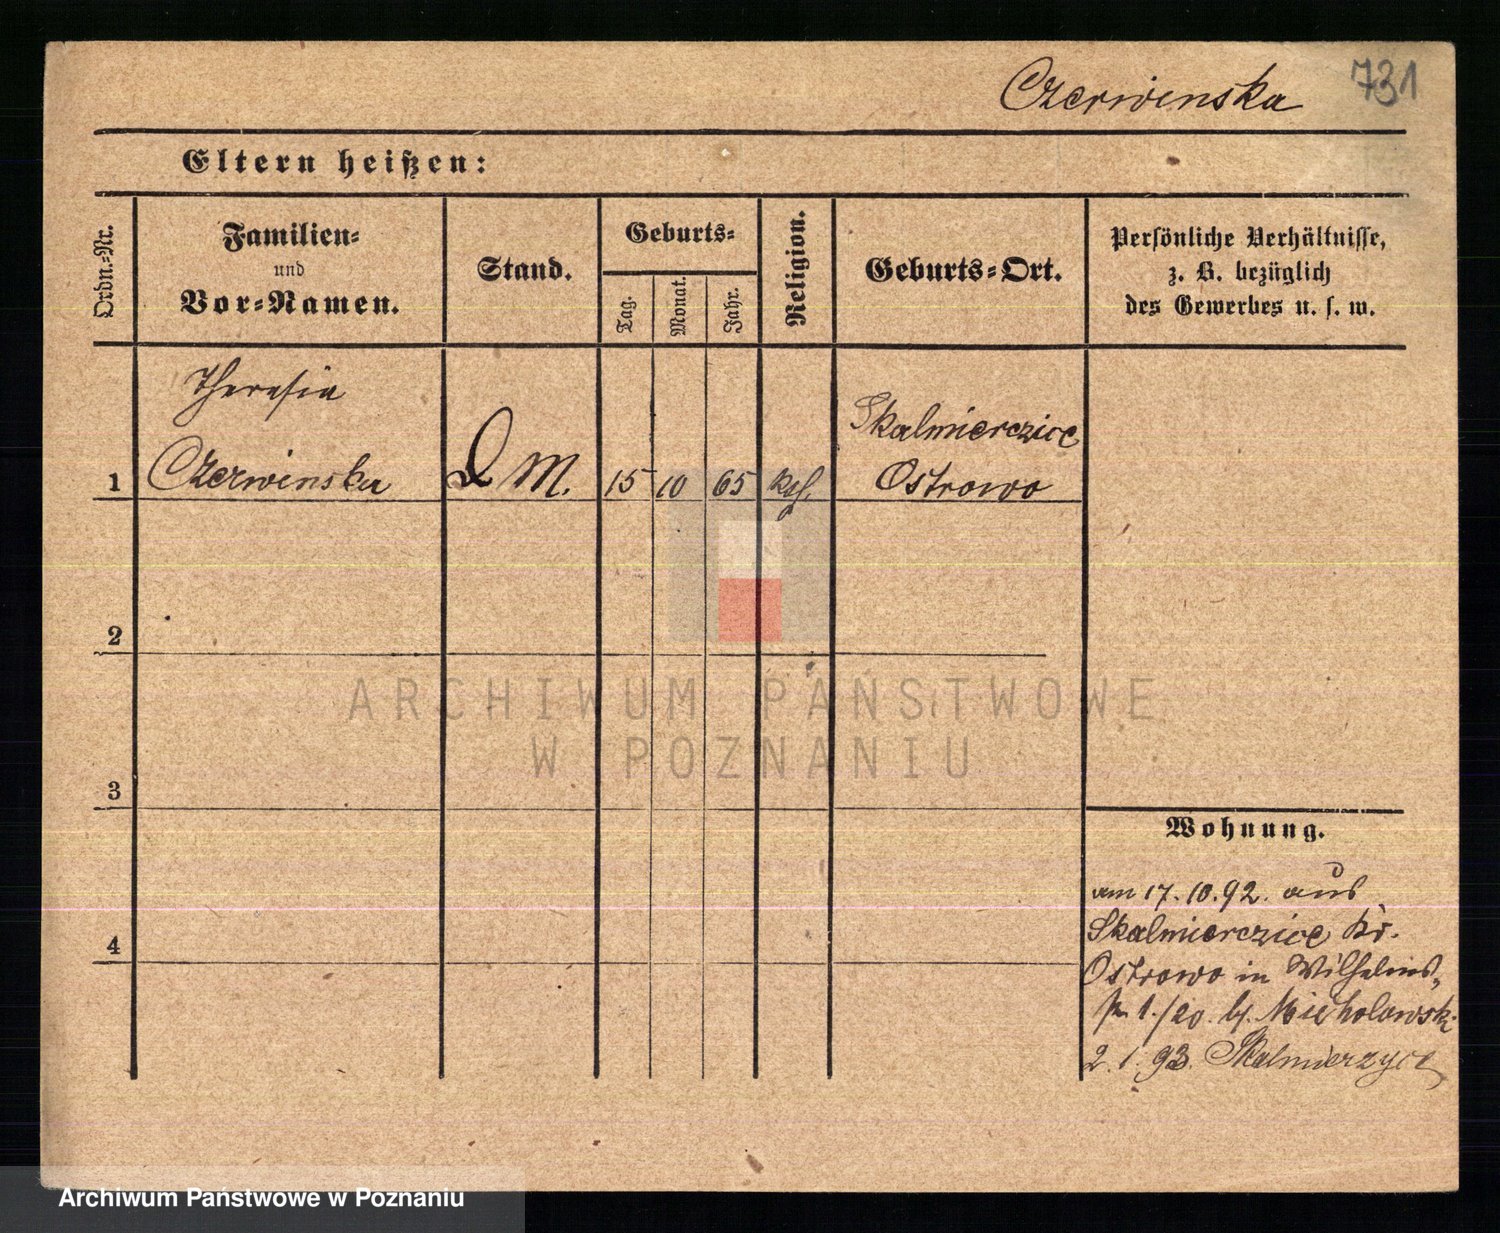 Czerwinska 731
Eltern heißen:
Ordn.-Nr.
Familien-
und
Vor-Namen.
Stand.
Geburts-
Tag.
Monat.
Jahr.
Religion.
Geburts-Ort.
Persönliche Verhältnisse,
z. B. bezüglich
des Gewerbes u. s. w.
Theresia
Skalmierczice
1 Czerwinska D M. 15 10 65 kth. Ostrowo
2
3
4
Wohnung.
am 17.10.92. aus
Skalmierczice Kr.
Ostrowo in Wilhelms-
1./20. b/. Micholowski
2.1.93. Skalmierzyce
ARCHIWUM PAŃSTWOWE
W POZNANIU
Archiwum Państwowe w Poznaniu